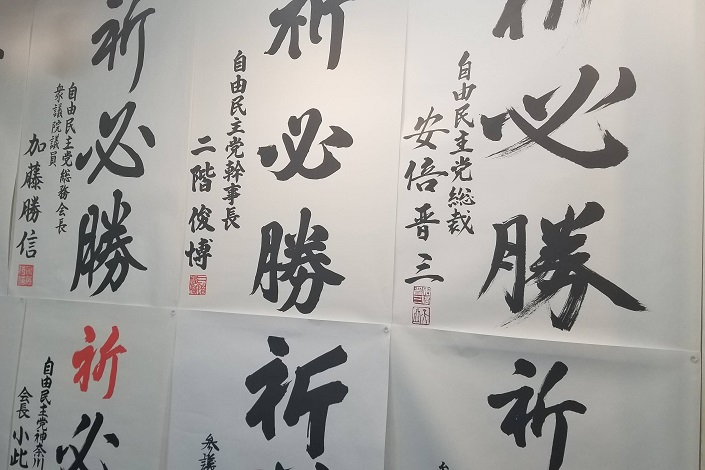 祈必勝
自由民主党総裁
安倍晋三
祈必勝
自由民主党幹事長
二階俊博
祈必勝
自由民主党総務会長
衆議院議員
加藤勝信
祈
祈
参議
祈必
自由民主党神奈川
会長 小此